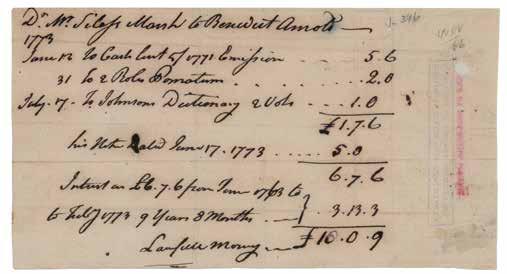 Dr Mr. Silas Marsh to Benedict Arnold
1773
June 12 To Cash Lent of 1771 Emission . . . . 5.6
31 To 2 Roles Pomatum . . . . 2.0
July. 17. To Johnsons Dictionary 2 Vols . . . 1.0
£1.7.6
his Note Dated June 17. 1773 . . . . . 5.0
6.7.6
Interest on £6.7.6 from June 1763 to
to Feby 1773 9 Years 8 Months . . . } . 3.13.3
Lawfull Money £10.0.9